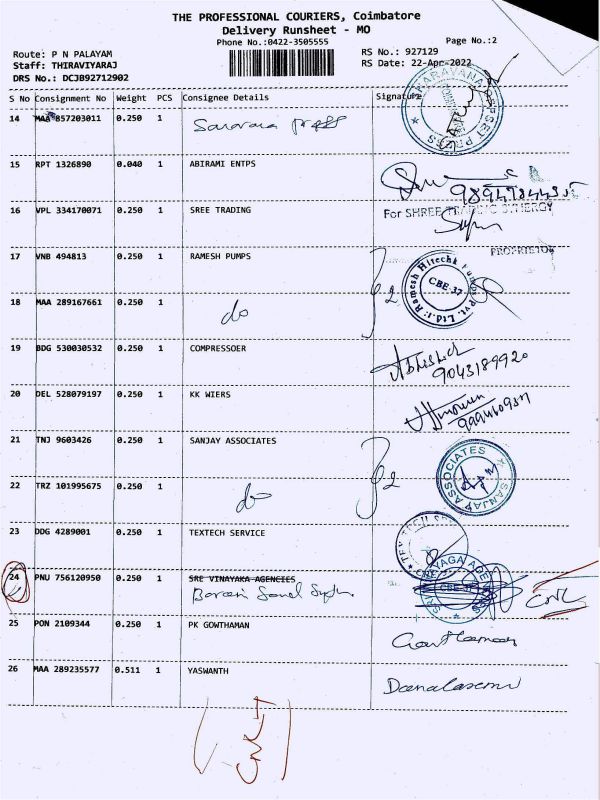 THE PROFESSIONAL COURIERS, Coimbatore
Delivery Runsheet - MO
Phone No.:0422-3505555
Page No.:2
Route: P N PALAYAM
RS No.: 927129
Staff: THIRAVIYARAJ
RS Date: 22-Apr-2022
DRS No.: DCJB92712902
S No Consignment No Weight PCS Consignee Details Signature
14 MAA 857203011 0.250 1
15 RPT 1326890 0.040 1 ABIRAMI ENTPS
16 VPL 334170071 0.250 1 SREE TRADING
For SHREE TRADING SYNERGY
PROPRIETOR
17 VNB 494813 0.250 1 RAMESH PUMPS
Ramesh Hitech Pumps Pvt. Ltd.
CBE-37
2
18 MAA 289167661 0.250 1 do
19 BDG 530030532 0.250 1 COMPRESSOER
Abhishek
9043189920
20 DEL 528079197 0.250 1 KK WIERS
21 TNJ 9603426 0.250 1 SANJAY ASSOCIATES
SANJAY ASSOCIATES
2
22 TRZ 101995675 0.250 1 do
23 DDG 4289001 0.250 1 TEXTECH SERVICE
24 PNU 756120950 0.250 1 SRE VINAYAKA AGENCIES
25 PON 2109344 0.250 1 PK GOWTHAMAN
26 MAA 289235577 0.511 1 YASWANTH